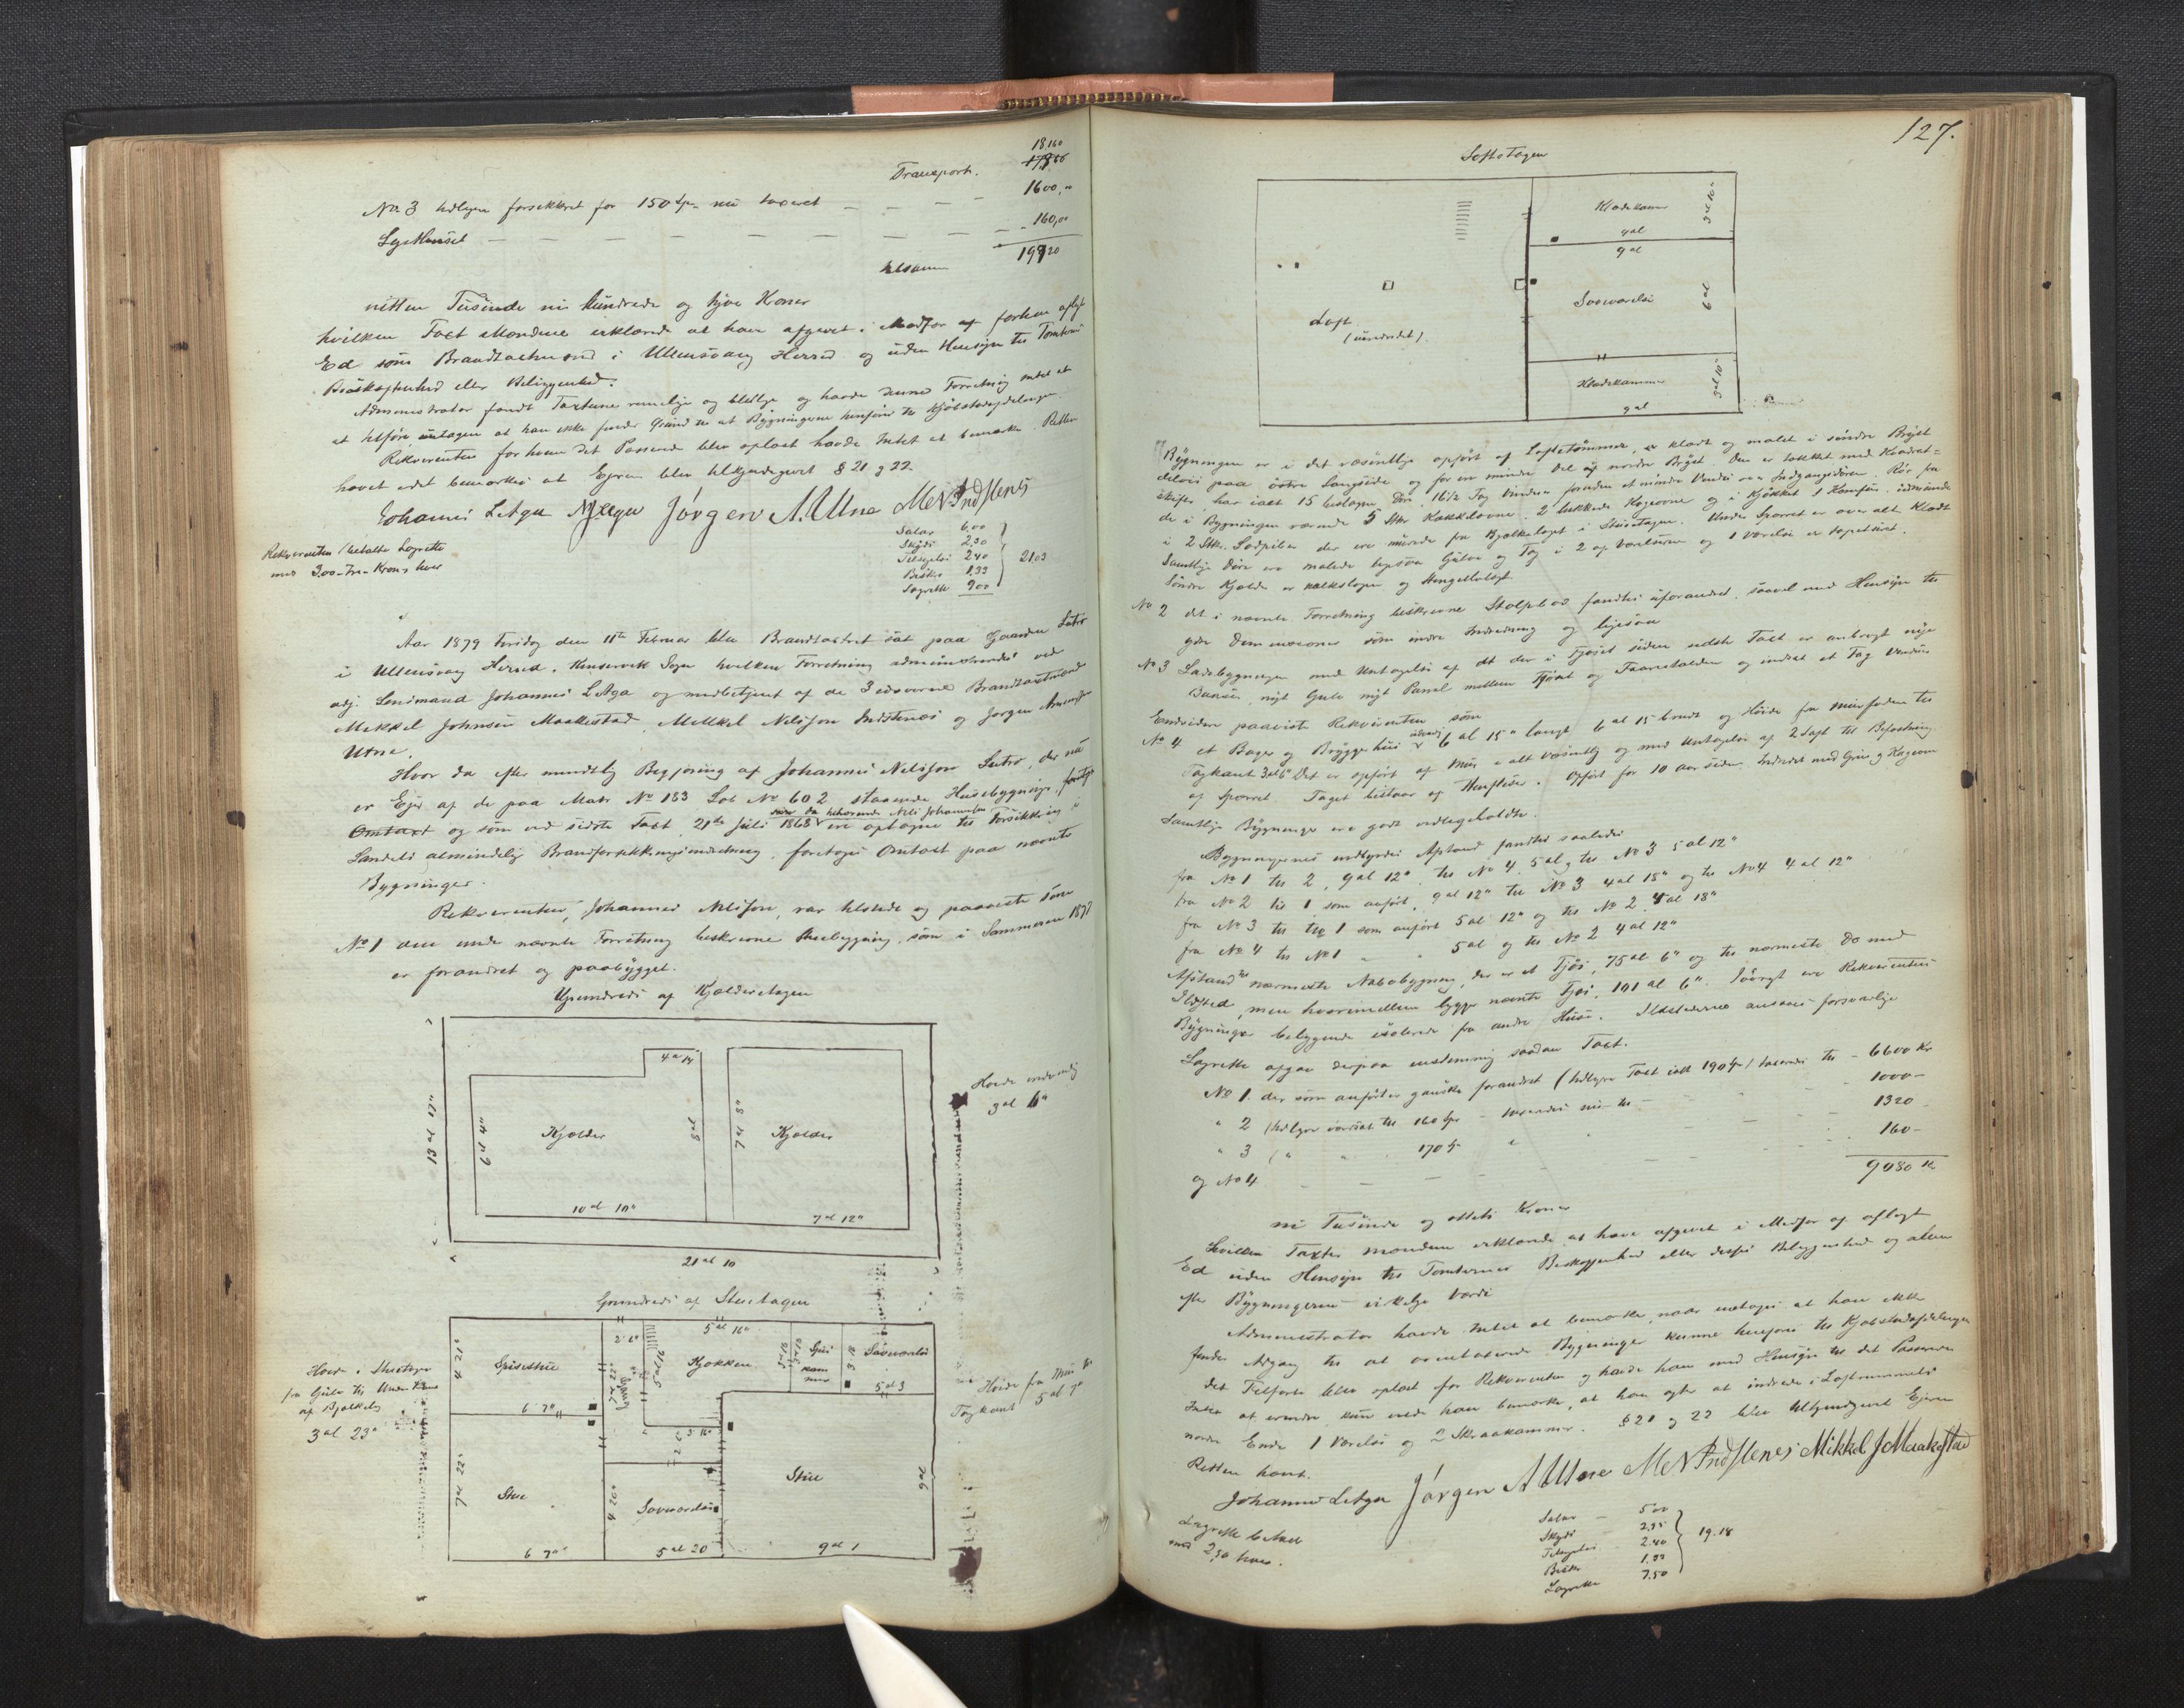 Transport. 18,160
No 3 tidligere forsikkret for 150 Spr. nu taxeret — — — — 1600,"
— — — — — — — — — 160,00
tilsammen 19920
nitten Tusinde ni hundrede og tyve Kroner
hvilken Taxt Mændene erklærede at have afgivet i Medfør af forhen aflagt
Ed som Brandtaxtmænd i Ullensvang Herred og uden Hensyn til Tomternes
Beskaffenhed eller Beliggenhed.
Administrator fandt Taxterne rimelige og billige og havde denne Forretning intet at
at tilføre, undtagen at han ikke finder Grund til at Bygningerne henføres til Kjøbstadafdelingen.
Rekvirenten for hvem det Passerede blev oplæst havde Intet at bemærke. Retten
hævet idet bemærkes at Ejeren blev tilkjendegivet § 21 g 22
Johannes L Aga Jørgen A. Utne M N Indstenes
Rekvirenten betalte Lagrette
med 3,00 - Tre - Kroner hver
Salær 6,00
Skyds 2,30
Tilsigelse 2,40
Beskr. 1,33
Lagrette 9,00
21,03
Aar 1879 Tirsdag den 11te Februar blev Brandtaxtret sat paa Gaarden Sætre
i Ullensvang Herred, Kinservik Sogn hvilken Forretning administreredes ved
adj. Lensmand Johannes L Aga og medbetjent af de 3 edsvorne Brandtaxtmænd
Mikkel Johnsen Maakestad, Mikkel Nilsson Indstenes og Jørgen Amundsen
Utne.
Hvor da efter mundtlig Begjæring af Johannes Nilsson Sætre, der nu
er Ejer af de paa Matr No 183 Løb No 602 staaende Husebygninger, foretoges
Omtaxt og som ved sidste Taxt 21de Juli 1868 som da tilhørende Nils Johannessen ere optagne til Forsikkring i
Landets almindelige Brandforsikkringsindretning, foretoges Omtaxt paa nævnte
Bygninger.
Rekvirenten, Johannes Nilsson, var tilstede og paaviste som
No 1 den under nævnte Forretning beskrevne Stuebygning, som i Sommeren 1878
er forandret og paabygget.
Grundrids af Kjælderetagen
4 al 14
Høide indvendig
3 al 6"
13 al 17"
6 al 4"
Kjælder
8 al
7 al 8"
Kjælder
10 al 10"
7 al 12"
21 al 10
Grundrids af Stuetagen
5 al 16"
4 al 21"
Spisestue
2 6"
7 al 22"
Gang
5 al 12
Kjøkken
3 al 18
Spis
kam
mer
3 18
Soveværelse
5 al 3
Høide i Stuetagen
fra Gulv til Underkant
af Bjælkelag
3 al 23"
6 7"
Høide fra Mur til
Tagkant 5 al 7"
3 16"
7 al 22"
Stue
4 20"
Soveværelse
Stue
9 al
6 7"
5 al 20
9 al 1
127.
Loftetagen
Klædekammer
9 al
3 al 10"
9 al
Soveværelse
6 al
Loft
(uindredet).
Klædekammer
9 al
3 al 10"
Bygningen er i det væsentlige opført af Loftetømmer, er klædt og malet i søndre Bryst
delvis paa østre Langside og for en mindre Del af nordre Bryst. Den er tækket med Kvadrat-
skifer har ialt 15 Do. 16 1/2 Fag Vinduer foruden et mindre Vindu over Indgangsdøren. Rør fra
de i Bygningen værende 5 Stkr Kakkelovne, 2 lukkede Kogeovne og i Kjøkket 1 Komfur, udmunde
i 2 Stkr. Lodpiber der ere murede fra Bjælkelaget i Stuetagen. Under Sparret er over alt Klædt
Samtlige Døre ere malede ligesaa Gulve og Tag i 2 af Værelserne og 1 Værelse er tapetseret.
Søndre Kjælder er kalkslagen og Stengulvlagt.
No 2 det i nævnte Forretning beskrevne Stolpbod fandtes uforandret, saavel med Hensyn til
ydre Dimensioner som indre Indredning og ligesaa
No 3 Ladebygningen med Undtagelse af at der i Fjøset siden sidste Taxt er anbragt nye
Baase, nyt Gulv nyt Panel mellem Fjøset og Faarestalden og indsat et Fag Vinduer
Endvidere paaviste Rekvirenten som
No 4 et Bage og Bryggerhus udvendig 6 al 15" langt 6 al 15 bredt og Høide fra Murfoden til
Tagkant 3 al 6" Det er opført af Mur i alt væsentlig og med Undtagelse af 2 Laft til Befæstning
af Sparret. Taget bestaar af Stenheller. Opført for 10 Aar siden. Indredet med Grue og Bageovn
Samtlige Bygninger ere godt vedligeholdte.
Bygningernes indbyrdes Afstand fandtes saaledes
fra No 1 til 2, 9 al 12", til No 4, 5 al, til No 3 5 al 12"
fra No 2 til 1 som anført, 9 al 12" til No 3 4 al 18" og til No 4 4 al 12"
fra No 3 til 1 som anført 5 al 12" og til No 2 4 al 18"
fra No 4 til No 1 " " 5 al og til No 2 4 al 12"
Afstand til nærmeste Nabobygning, der er et Fjøs, 75 al 6" og til nærmeste Do med
Ildsted, men hvorimellem ligge nævnte Fjøs, 101 al 6". Iøvrigt ere Rekvirentens
Bygninger beliggende isolerede fra andre Huse. Ildstederne ansees forsvarlige
Lagrette afgav derpaa eenstemmig saadan Taxt.
No 1. der som anført er ganske forandret (tidligere Taxt ialt 190 Spr) taxeredes til — 6600 Kr
" 2 (tidligere værdsat til 160 Spr — taxeredes nu til — 1000 —
" 3 ( " " 170 Sp " 1320
og No 4 — — — — — 160 —
9080 Kr
ni Tusinde og otteti Kroner
hvilken Taxter Mændene erklærede at have afgivet i Medfør af aflagt
Ed uden Hensyn til Tomternes Beskaffenhed eller deres Beliggenhed og alene
efter Bygningernes virkelige Værdi
Administrator havde Intet at bemærke, naar undtages at han ikke
finder Adgang til at omtaxerede Bygninger kunne henføres til Kjøbstadafdelingen
Det Tilførte blev oplæst for Rekvirenten og havde han med Hensyn til det Passerede
Intet at erindre, kun vilde han bemærke, at han agter at indrede i Loftrummets
nordre Ende 1 Værelse og 2 Skraakammer. § 21 g 22 blev tilkjendegivet Ejeren
Retten hævet.
Johannes L Aga Jørgen A Utne M N Indstenes Mikkel J Maakestad
Lagrette betalt
med 2,50 hver.
Salær — 5,00
Skyds — 2,95
Tilsigelse 2,40
Beskr. 1,33
Lagrette 7,50
19,18